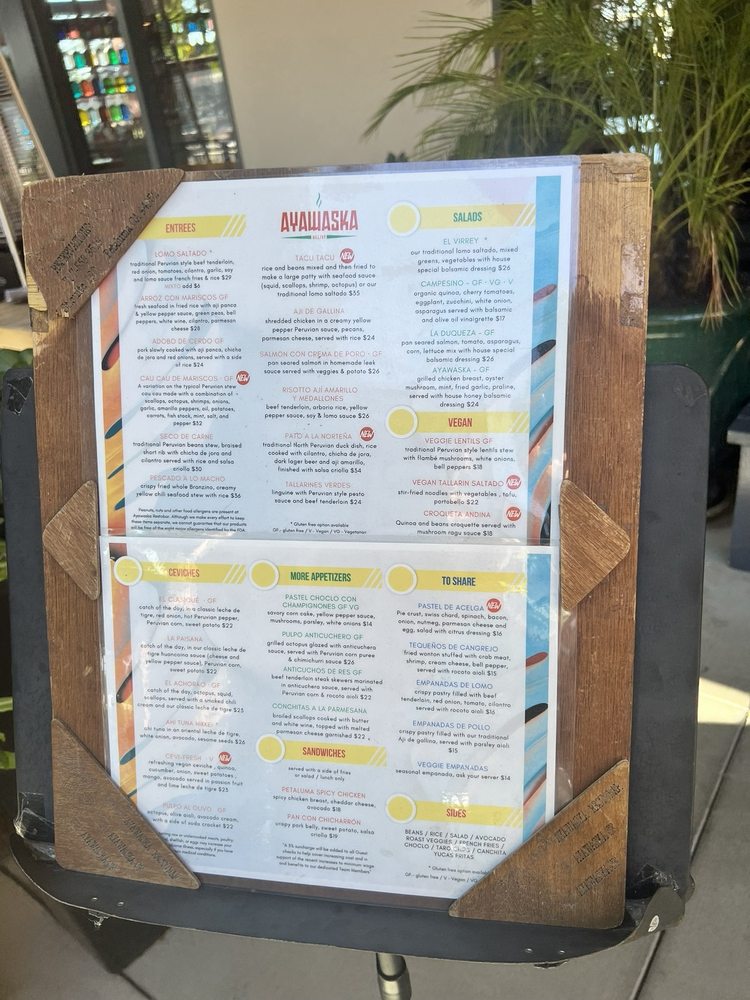 ENTREES
LOMO SALTADO *
traditional Peruvian style beef tenderloin,
red onion, tomatoes, cilantro, garlic, soy
and lomo sauce french fries & rice $29
MIXTO add $6
ARROZ CON MARISCOS GF
fresh seafood in fried rice with aji panca
& yellow pepper sauce, green peas, bell
peppers, white wine, cilantro, parmesan
cheese $28
ADOBO DE CERDO GF
pork slowly cooked with aji panca, chicha
de jora and red onions, served with a side
of rice $24
CAU CAU DE MARISCOS - GF NEW
A variation on the typical Peruvian stew
cau cau made with a combination of
scallops, octopus, shrimps, onions,
garlic, amarilla peppers, oil, potatoes,
carrots, fish stock, mint, salt, and
pepper $32
SECO DE CARNE
traditional Peruvian beans stew, braised
short rib with chicha de jora and
cilantro served with rice and salsa
criolla $30
PESCADO A LO MACHO
crispy fried whole Bronzino, creamy
yellow chili seafood stew with rice $36
Peanuts, nuts and other food allergens are present at
Ayawaska Restobar. Although we make every effort to keep
these items separate, we cannot guarantee that our products
will be free of the eight major allergens identified by the FDA.
AYAWASKA
TACU TACU NEW
rice and beans mixed and then fried to
make a large patty with seafood sauce
(squid, scallops, shrimp, octopus) or our
traditional lomo saltado $35
AJI DE GALLINA
shredded chicken in a creamy yellow
pepper Peruvian sauce, pecans,
parmesan cheese, served with rice $24
SALMÓN CON CREMA DE PORO - GF
pan seared salmon in homemade leek
sauce served with veggies & potato $26
RISOTTO AJÍ AMARILLO
Y MEDALLONES
beef tenderloin, arborio rice, yellow
pepper sauce, soy & lomo sauce $26
PATO A LA NORTEÑA NEW
traditional North Peruvian duck dish, rice
cooked with cilantro, chicha de jora,
dark lager beer and aji amarillo,
finished with salsa criolla $34
TALLARINES VERDES
linguine with Peruvian style pesto
sauce and beef tenderloin $24
* Gluten free option available
GF - gluten free / V - Vegan / VG - Vegetarian
SALADS
EL VIRREY *
our traditional lomo saltado, mixed
greens, vegetables with house
special balsamic dressing $26
CAMPESINO - GF - VG - V
organic quinoa, cherry tomatoes,
eggplant, zucchini, white onion,
asparagus served with balsamic
and olive oil vinaigrette $17
LA DUQUEZA - GF
pan seared salmon, tomato, asparagus,
corn, lettuce mix with house special
balsamic dressing $26
AYAWASKA - GF
grilled chicken breast, oyster
mushroom, mint, fried garlic, praline,
served with house honey balsamic
dressing $24
VEGAN
VEGGIE LENTILS GF
traditional Peruvian style lentils stew
with flambé mushrooms, white onions,
bell peppers $18
VEGAN TALLARIN SALTADO NEW
stir-fried noodles with vegetables, tofu,
portobello $22
CROQUETA ANDINA NEW
Quinoa and beans croquette served with
mushroom ragu sauce $18
CEVICHES
EL CLASIQUE - GF
catch of the day, in a classic leche de
tigre, red onion, hot Peruvian pepper,
Peruvian corn, sweet potato $22
LA PAISANA
catch of the day, in our classic leche de
tigre huancaina sauce (cheese and
yellow pepper sauce), Peruvian corn,
sweet potato $22
EL ACHORAO - GF
catch of the day, octopus, squid,
scallops, served with a smoked chili
cream and our classic leche de tigre $25
AHI TUNA NIKKEI *
ahi tuna in an oriental leche de tigre,
white onion, avocado, sesame seeds $26
CEVI-FRESH - V NEW
refreshing vegan ceviche, quinoa,
cucumber, onion, sweet potatoes,
mango, avocado served in passion fruit
and lime leche de tigre $23
PULPO AL OLIVO - GF
octopus, olive aioli, avocado cream,
with a side of soda cracket $22
MORE APPETIZERS
PASTEL CHOCLO CON
CHAMPIGNONES GF VG
savory corn cake, yellow pepper sauce,
mushrooms, parsley, white onions $14
PULPO ANTICUCHERO GF
grilled octopus glazed with anticuchera
sauce, served with Peruvian corn puree
& chimichurri sauce $26
ANTICUCHOS DE RES GF
beef tenderloin steak skewers marinated
in anticuchera sauce, served with
Peruvian corn & rocoto aioli $22
CONCHITAS A LA PARMESANA
broiled scallops cooked with butter
and white wine, topped with melted
parmesan cheese garnished $22
SANDWICHES
served with a side of fries
or salad / lunch only
PETALUMA SPICY CHICKEN
spicy chicken breast, cheddar cheese,
avocado $18
PAN CON CHICHARRÓN
crispy pork belly, sweet potato, salsa
criolla $19
"A 5% surcharge will be added to all Guest
checks to help cover increasing cost and in
support of the recent increases to minimum wage
and benefits to our dedicated Team Members"
TO SHARE
PASTEL DE ACELGA NEW
Pie crust, swiss chard, spinach, bacon,
onion, nutmeg, parmesan cheese and
egg, salad with citrus dressing $16
TEQUEÑOS DE CANGREJO
fried wonton stuffed with crab meat,
shrimp, cream cheese, bell pepper,
served with rocoto aioli $15
EMPANADAS DE LOMO
crispy pastry filled with beef
tenderloin, red onion, tomato, cilantro
served with rocoto aioli $16
EMPANADAS DE POLLO
crispy pastry filled with our traditional
Aji de gallina, served with parsley aioli
$15
VEGGIE EMPANADAS
seasonal empanada, ask your server $14
SIDES
BEANS / RICE / SALAD / AVOCADO
ROAST VEGGIES / FRENCH FRIES /
CHOCLO / TARO CHIPS / CANCHITA
YUCAS FRITAS
* Gluten free option available
GF - gluten free / V - Vegan / VG